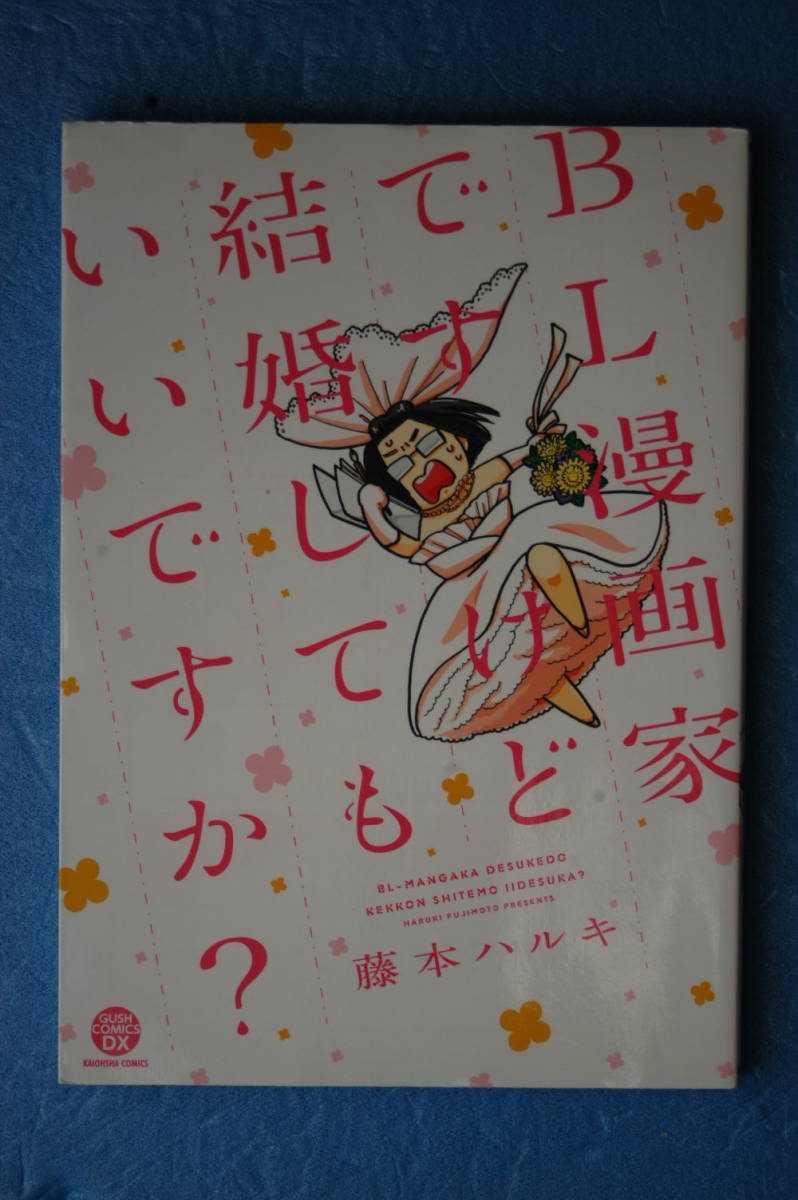 BL漫画家
ですけど
結婚しても
いいですか？
BL-MANGAKA DESUKEDO
KEKKON SHITEMO IIDESUKA?
HARUKI FUJIMOTO PRESENTS
藤本ハルキ
GUSH
COMICS
DX
KAIOHSHA COMICS